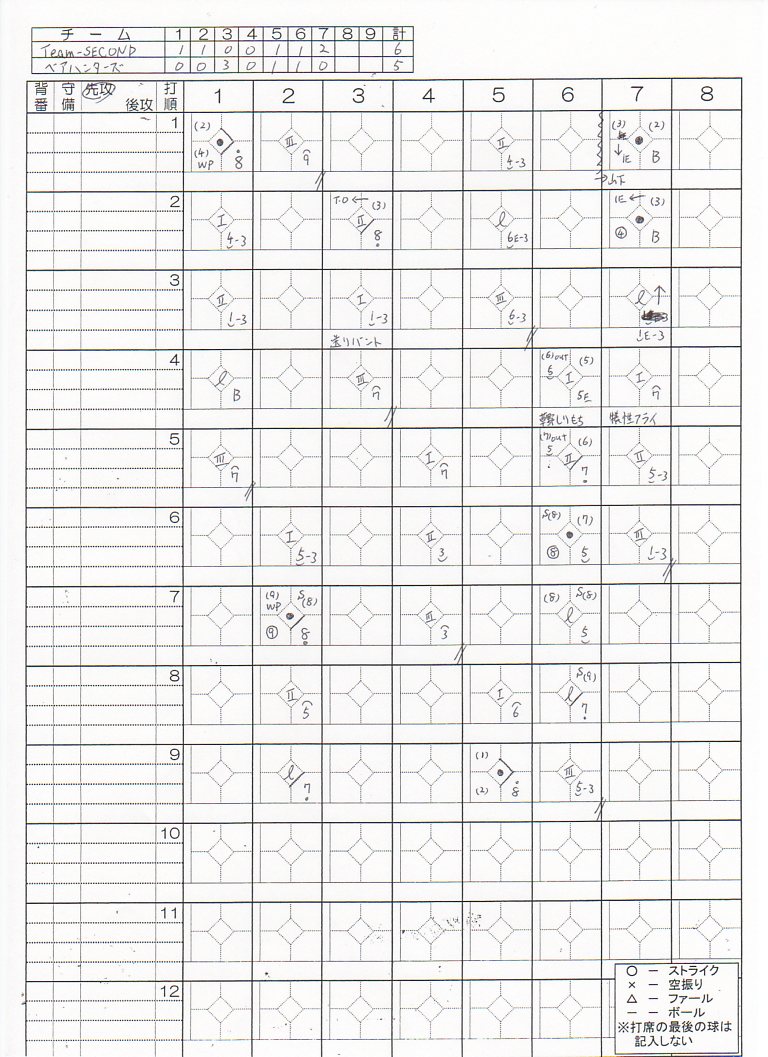 チーム 1 2 3 4 5 6 7 8 9 計
Team-SECOND 1 1 0 0 1 1 2 6
ベアハンターズ 0 0 3 0 1 1 0 5
背番 守備 先攻 後攻 打順 1 2 3 4 5 6 7 8
1 (2) (4) WP 8 III 9 II 4-3 (3) (2) IE B
→山下
2 I 4-3 T.O (3) II 8 l 6E-3 IE (3) ④ B
3 II 1-3 I 1-3 III 6-3 l 1E-3
送りバント
4 l B III 7 (6)out (5) 5 I 5E I 7
しりもち 犠性フライ
5 III 7 I 7 (7)out (6) 5 II 7 II 5-3
6 I 5-3 II 3 S(8) (7) ⑧ 5 III 1-3
7 (9) S(8) WP ⑨ 8 III 3 (8) S(8) l 5
8 II 5 I 6 S(9) l 7
9 l 7 (1) (2) 8 III 5-3
10
11
12
○ － ストライク
× － 空振り
△ － ファール
－ － ボール
※打席の最後の球は
記入しない